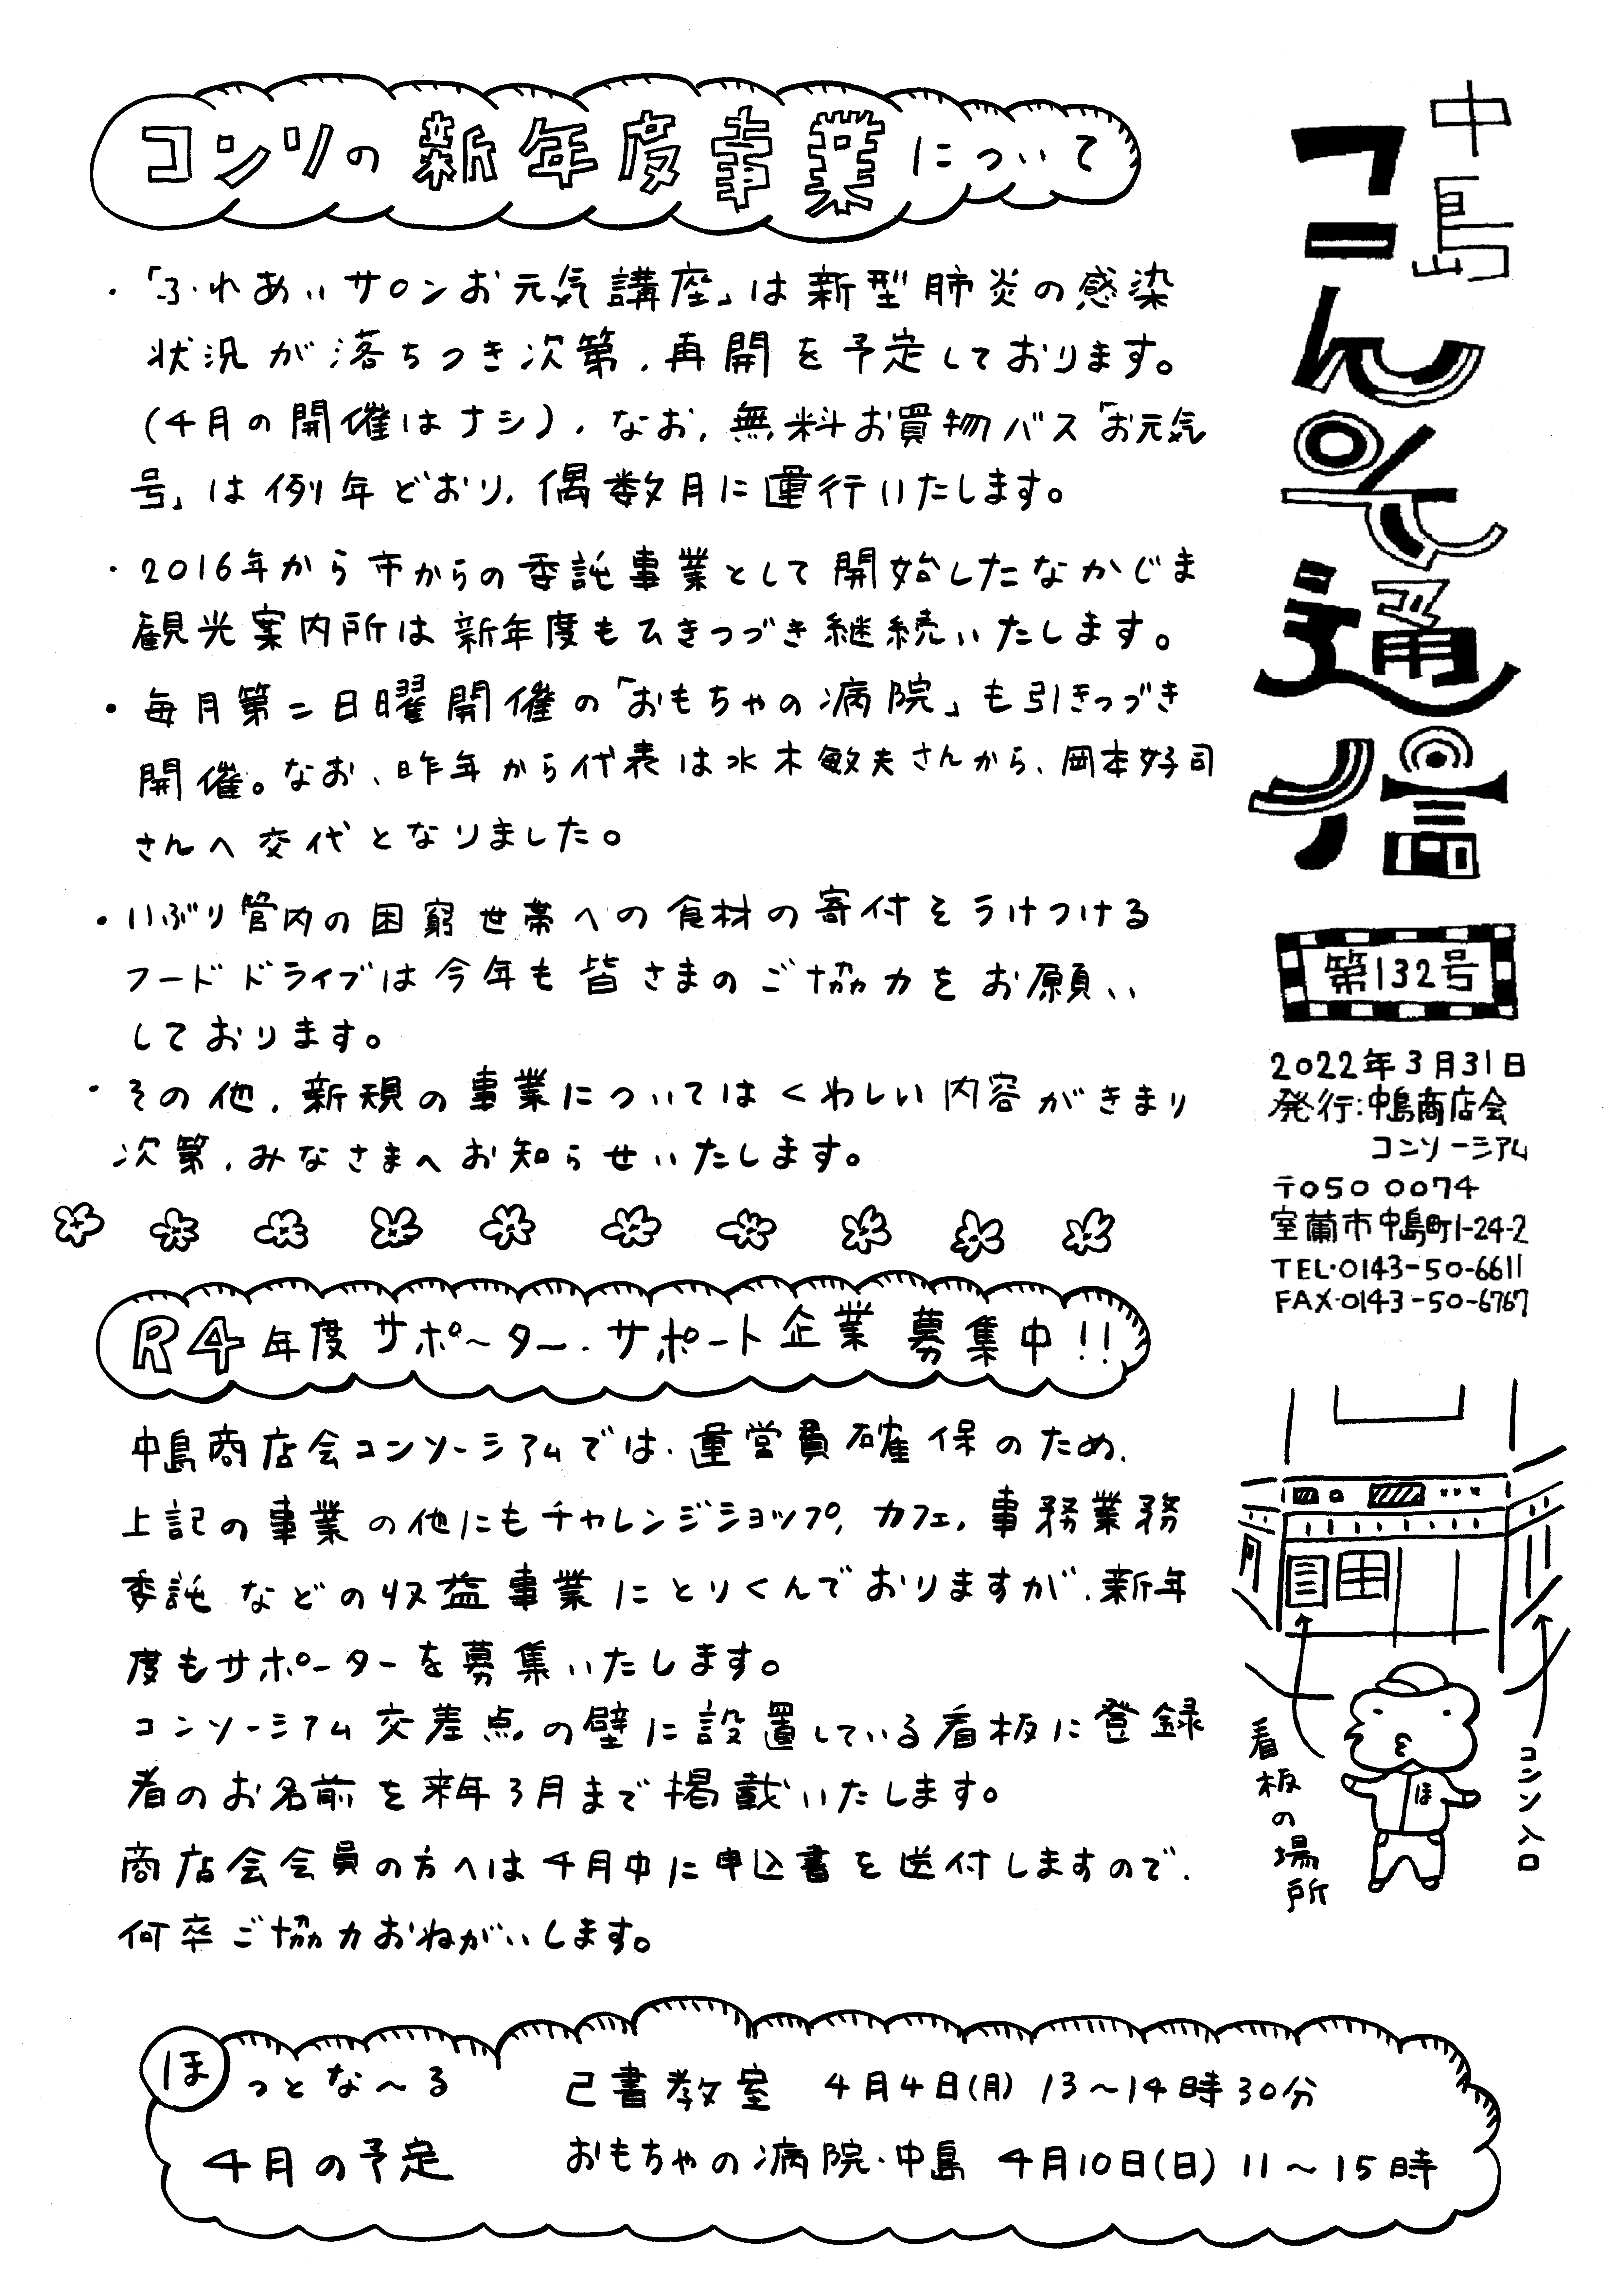 中島
コニんぞ通信
第132号
2022年3月31日
発行:中島商店会
コンソーシアム
〒050 0074
室蘭市中島町1-24-2
TEL・0143-50-6611
FAX・0143-50-6767
コンソの新年度事業について
・「ふれあいサロンお元気講座」は新型肺炎の感染
状況が落ちつき次第、再開を予定しております。
(4月の開催はナシ)、なお、無料お買物バス「お元気
号」は例年どおり、偶数月に運行いたします。
・2016年から市からの委託事業として開始したなかじま
観光案内所は新年度もひきつづき継続いたします。
・毎月第二日曜開催の「おもちゃの病院」も引きつづき
開催。なお、昨年から代表は水木敏夫さんから、岡本好司
さんへ交代となりました。
・いぶり管内の困窮世帯への食材の寄付をうけつける
フードドライブは今年も皆さまのご協力をお願い
しております。
・その他、新規の事業についてはくわしい内容がきまり
次第、みなさまへお知らせいたします。
R4年度サポーター・サポート企業募集中!!
中島商店会コンソーシアムでは、運営員確保のため、
上記の事業の他にもチャレンジショップ、カフェ、事務業務
委託などの収益事業にとりくんでおりますが、新年
度もサポーターを募集いたします。
コンソーシアム交差点の壁に設置している看板に登録
者のお名前を来年3月まで掲載いたします。
商店会会員の方へは4月中に申込書を送付しますので、
何卒ご協力おねがいします。
看板の場所
コンソ入口
ほ
ほっとな〜る
4月の予定
己書教室 4月4日(月) 13〜14時30分
おもちゃの病院・中島 4月10日(日) 11〜15時